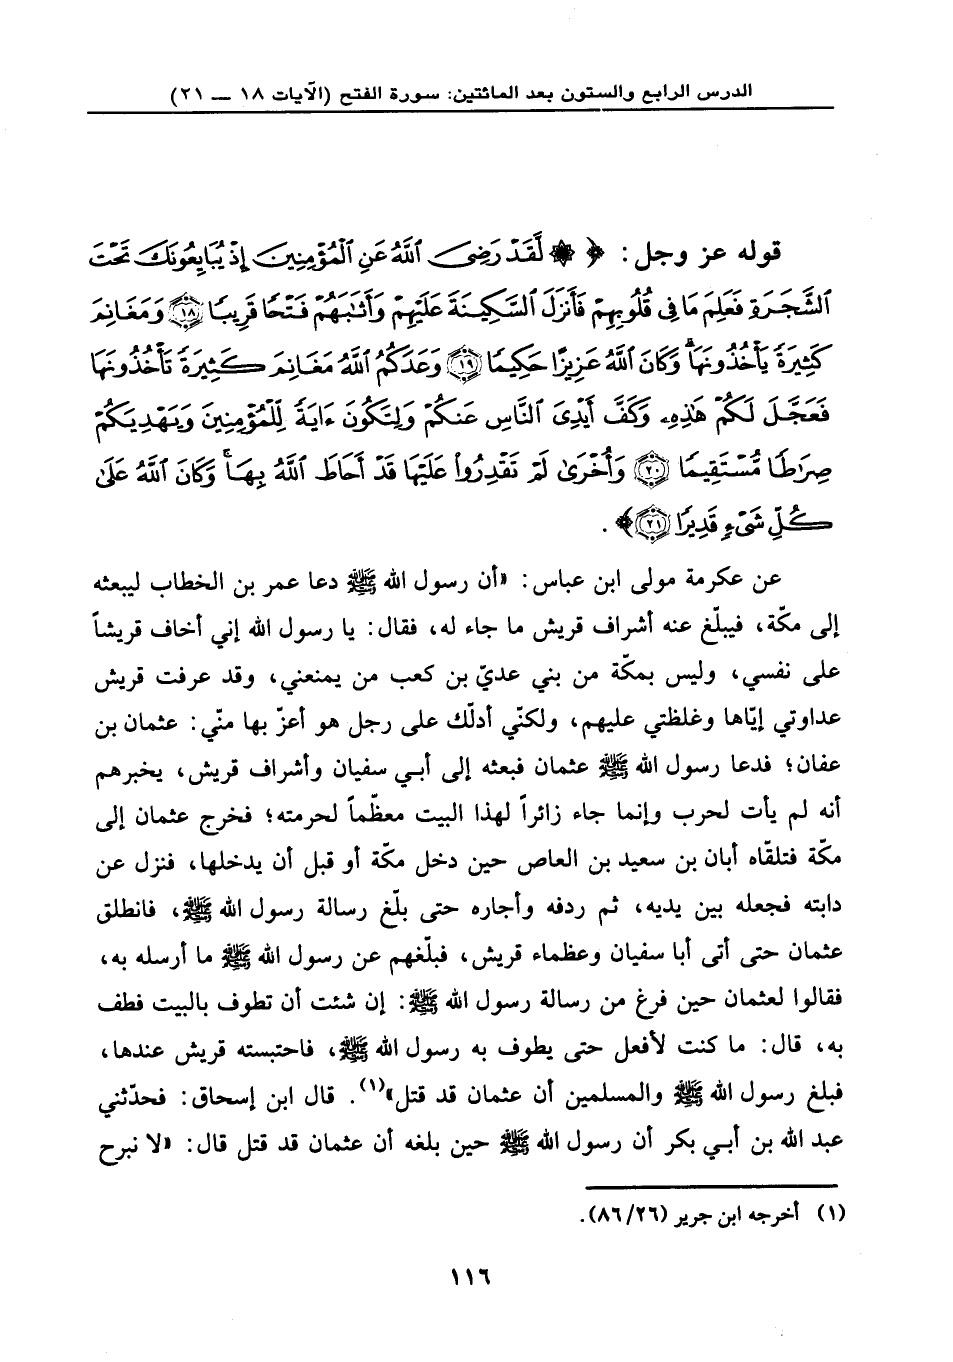 الدرس الرابع والستون بعد المائتين: سورة الفتح (الآيات ١٨ — ٢١)
قوله عز وجل: ﴿ ۞ لَّقَدْ رَضِىَ ٱللَّهُ عَنِ ٱلْمُؤْمِنِينَ إِذْ يُبَايِعُونَكَ تَحْتَ
ٱلشَّجَرَةِ فَعَلِمَ مَا فِى قُلُوبِهِمْ فَأَنزَلَ ٱلسَّكِينَةَ عَلَيْهِمْ وَأَثَٰبَهُمْ فَتْحًا قَرِيبًا ۝١٨ وَمَغَانِمَ
كَثِيرَةً يَأْخُذُونَهَا ۗ وَكَانَ ٱللَّهُ عَزِيزًا حَكِيمًا ۝١٩ وَعَدَكُمُ ٱللَّهُ مَغَانِمَ كَثِيرَةً تَأْخُذُونَهَا
فَعَجَّلَ لَكُمْ هَٰذِهِۦ وَكَفَّ أَيْدِىَ ٱلنَّاسِ عَنكُمْ وَلِتَكُونَ ءَايَةً لِّلْمُؤْمِنِينَ وَيَهْدِيَكُمْ
صِرَٰطًا مُّسْتَقِيمًا ۝٢٠ وَأُخْرَىٰ لَمْ تَقْدِرُوا۟ عَلَيْهَا قَدْ أَحَاطَ ٱللَّهُ بِهَا ۚ وَكَانَ ٱللَّهُ عَلَىٰ
كُلِّ شَىْءٍ قَدِيرًا ۝٢١﴾ .
عن عكرمة مولى ابن عباس: «أن رسول الله ﷺ دعا عمر بن الخطاب ليبعثه
إلى مكّة، فيبلّغ عنه أشراف قريش ما جاء له، فقال: يا رسول الله إني أخاف قريشاً
على نفسي، وليس بمكّة من بني عديّ بن كعب من يمنعني، وقد عرفت قريش
عداوتي إيّاها وغلظتي عليهم، ولكنّي أدلّك على رجل هو أعزّ بها منّي: عثمان بن
عفان؛ فدعا رسول الله ﷺ عثمان فبعثه إلى أبي سفيان وأشراف قريش، يخبرهم
أنه لم يأت لحرب وإنما جاء زائراً لهذا البيت معظّماً لحرمته؛ فخرج عثمان إلى
مكّة فتلقّاه أبان بن سعيد بن العاص حين دخل مكّة أو قبل أن يدخلها، فنزل عن
دابته فجعله بين يديه، ثم ردفه وأجاره حتى بلّغ رسالة رسول الله ﷺ، فانطلق
عثمان حتى أتى أبا سفيان وعظماء قريش، فبلّغهم عن رسول الله ﷺ ما أرسله به،
فقالوا لعثمان حين فرغ من رسالة رسول الله ﷺ: إن شئت أن تطوف بالبيت فطف
به، قال: ما كنت لأفعل حتى يطوف به رسول الله ﷺ، فاحتبسته قريش عندها،
فبلغ رسول الله ﷺ والمسلمين أن عثمان قد قتل»(١). قال ابن إسحاق: فحدّثني
عبد الله بن أبي بكر أن رسول الله ﷺ حين بلغه أن عثمان قد قتل قال: «لا نبرح
(١) أخرجه ابن جرير (٨٦/٢٦).
١١٦